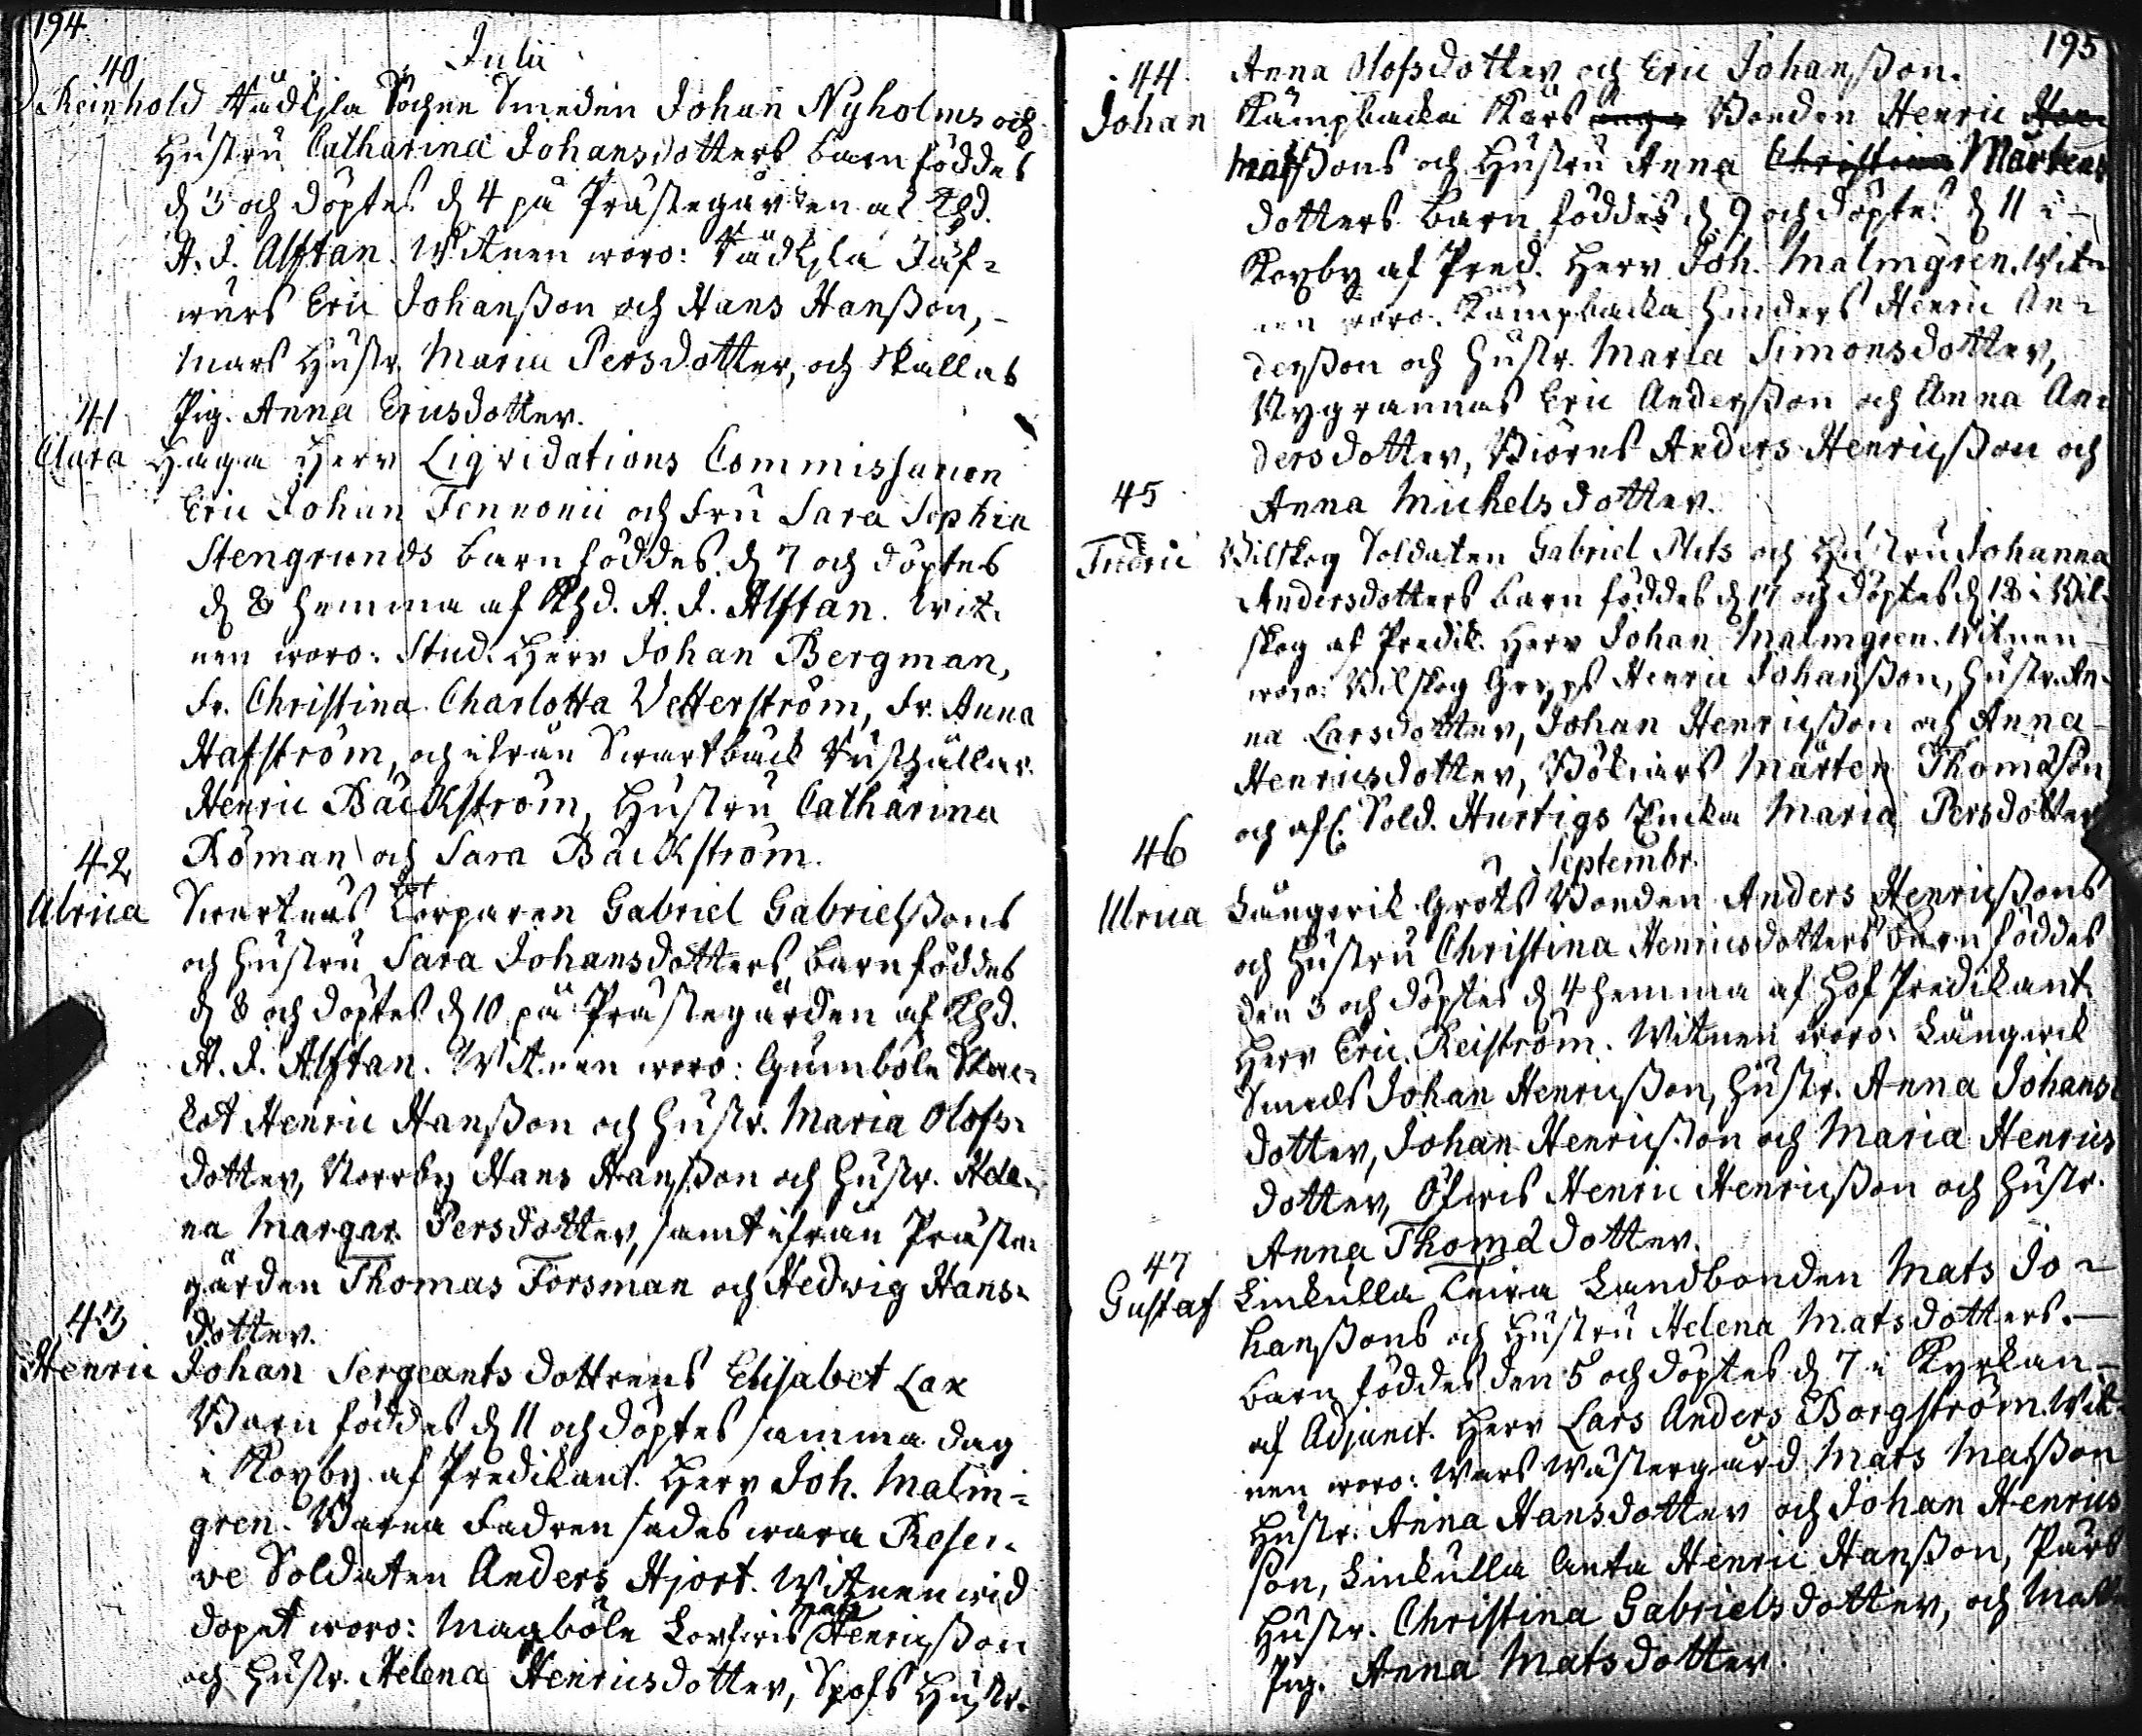 194
Julii
40
Reinhold Städsla Sochne Smeden Johan Nyholms och
Hustru Catharina Johansdotters barn föddes
d 3 och döptes d 4 på Prästegården af Khd.
A. J. Alftan. Witnen woro: Städsla Jäf-
wars Eric Johanßon och Hans Hanßon,
Mars Hustr. Maria Persdotter, och Skallas
Pig. Anna Ericsdotter.
41
Clara Haga Herr Liqvidations Commissarien
Eric Johan Fennonii och Fru Sara Sophia
Stengrunds barn föddes d 7 och döptes
d 8 hemma af Khd. A. J. Alftan. Wit-
nen woro: Stud. Herr Johan Bergman,
Fr. Christina Charlotta Vetterström, Fr. Anna
Hafström, och ifrån Swartbäck
Henric Bäckström, Hustru Catharina
Röman och Sara Bäckström.
42
Ulrica Swartnäs Torparen Gabriel Gabrielßons
och Hustru Sara Johansdotters barn föddes
d 8 och döptes d 10 på Prästegården af Khd.
A. J. Alftan. Witnen woro: Gumböle
Henric Hanßon och Hustr. Maria Olofs-
dotter, Norrby Hans Hanßon och Hustr. Hele-
na Margar. Persdotter, samt ifrån Präste-
gården Thomas Forsman och Hedwig Hans-
dotter.
43
Henric Johan Sergeants dottrens Elisabet Lax
Barn föddes d 11 och döptes samma dag
i Koxby af Predikant. Herr Joh. Malm-
gren. Barna Fadren sades wara Reser-
ve Soldaten Anders Hjort. Witnen wid
dopet woro: Magböle Henricßon
och Hustr. Helena Henricsdotter, Spofs Hustr.
195
Anna Olofsdotter och Eric Johanßon.
44
Johan Kämpbacka Kärs Bonden Henric
Matßons och Hustru Anna Christina Mårtens
dotters barn föddes d 9 och döptes d 11 i
Koxby af Pred. Herr Joh. Malmgren. Wit-
nen woro: Kämpbacka Hinders Henric An-
derßon och Hustr. Maria Simonsdotter,
Nygrannas Eric Anderßon och Anna An-
dersdotter, Biörns Anders Henricßon och
Anna Michelsdotter.
45
Fredric Bilskog Soldaten Gabriel Plits och Hustru Johanna
Andersdotters barn föddes d 17 och döptes d 18 i Bil-
skog af Predik. Herr Johan Malmgren. Witnen
woro: Bilskog Grops Henric Johanßon, Hustr. An-
na Larsdotter, Johan Henricßon och Anna
Henricsdotter, Bökars Mårten Thomasson
och afl. Sold. Hurtigs Encka Maria Persdotter
Septembr.
46
Ulrica Långwik Grots Bonden Anders Henricßons
och Hustru Christina Henricsdotters barn föddes
den 3 och döptes d 4 hemma af Hof Predikant.
Herr Eric Reiström. Witnen woro: Långwik
Smeds Johan Henricßon, Hustr. Anna Johans-
dotter, Johan Henricßon och Maria Henrics
dotter, Öfwis Henric Henricßon och Hustr.
Anna Thomadotter.
47
Gustaf Linkulla Landbonden Mats Jo-
hanßons och Hustru Helena Matsdotters
barn föddes den 5 och döptes d 7 i Kyrkan
af Adjunct. Herr Lars Anders Borgström. Wit-
nen woro: Wars Wästergård Mats Matßon
Hustr. Anna Hansdotter och Johan Henrics
son, Linkulla Anta Henric Hanßon, Pärs
Hustr. Christina Gabrielsdotter, och
Pig. Anna Matsdotter.